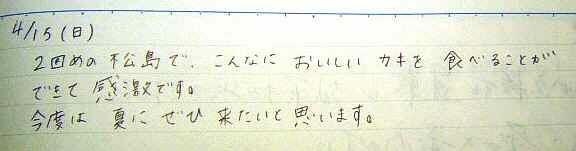 4/15(日)
2回めの松島で、こんなにおいしいカキを食べることが
できて感激です。
今度は夏にぜひ来たいと思います。